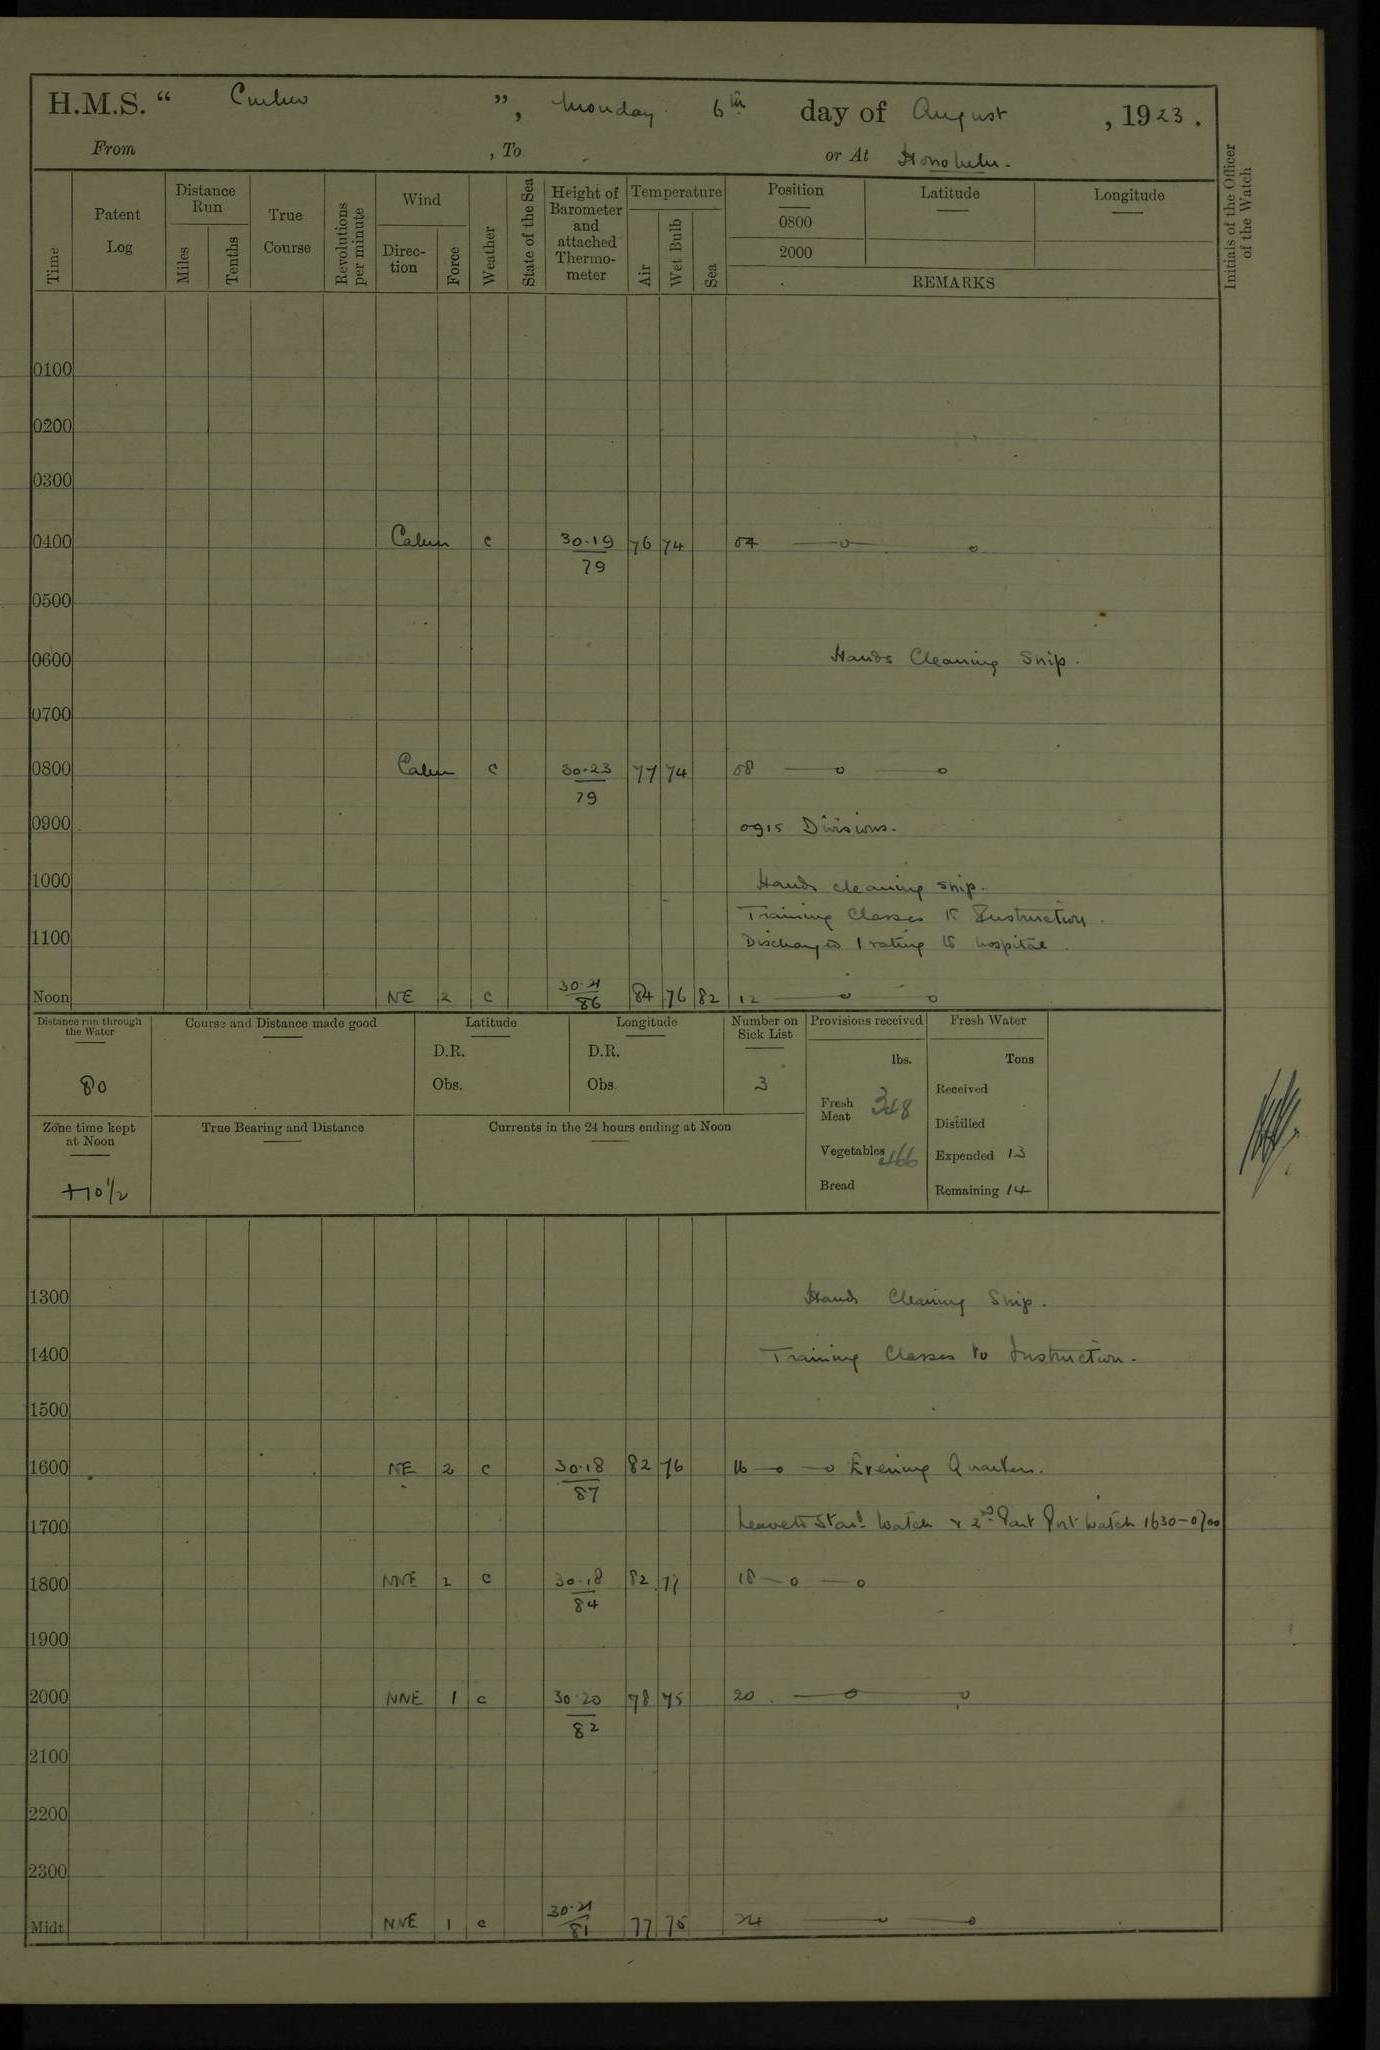 H.M.S. “ Curlew ”, Monday 6th day of August, 1923.
From , To or At Honolulu.
Time
Patent Log
Distance Run
Miles
Tenths
True Course
Revolutions per minute
Wind
Direction
Force
Weather
State of the Sea
Height of Barometer and attached Thermometer
Temperature
Air
Wet Bulb
Sea
Position
0800
2000
Latitude
Longitude
REMARKS
Initials of the Officer of the Watch
0100
0200
0300
0400 Calm c 30.19/79 76 74 04 —o— o
0500
0600 Hands Cleaning Ship.
0700
0800 Calm c 30.23/79 77 74 08 —o —o
0900 0915 Divisions.
1000 Hands cleaning ship.
Training Classes to Instruction.
1100 Discharged 1 rating to hospital.
Noon NE 2 c 30.21/86 84 76 82 12 —o —o
Distance run through the Water
80
Course and Distance made good
Latitude
D.R.
Obs.
Longitude
D.R.
Obs
Number on Sick List
3
Provisions received
lbs.
Fresh Meat 348
Vegetables 466
Bread
Fresh Water
Tons
Received
Distilled
Expended 13
Remaining 14
Zone time kept at Noon
+10½
True Bearing and Distance
Currents in the 24 hours ending at Noon
1300 Hands Cleaning Ship.
1400 Training Classes to Instruction.
1500
1600 NE 2 c 30.18/87 82 76 16 —o —o Evening Quarters.
1700 Leave to Starb. Watch & 2nd Part Port Watch 1630–0700
1800 NNE 2 c 30.18/84 82 77 18 —o —o
1900
2000 NNE 1 c 30.20/82 78 75 20 . —o— o
2100
2200
2300
Midt NNE 1 c 30.21/81 77 75 24 —o —o